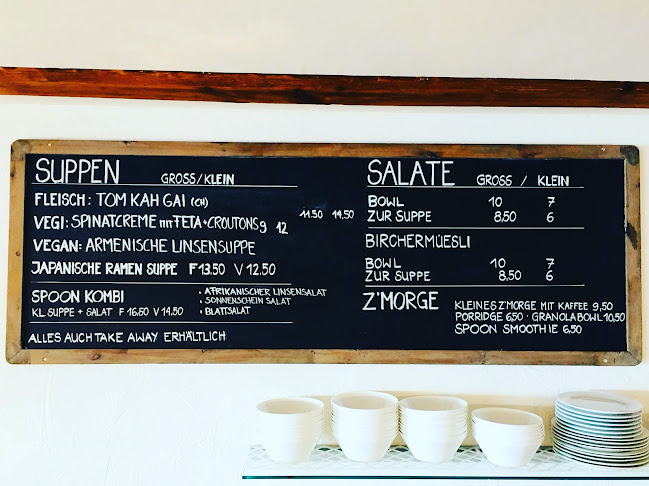 SUPPEN GROSS/KLEIN
FLEISCH: TOM KAH GAI (CH) 11.50 14.50
VEGI: SPINATCREME MIT FETA+CROUTONS 9 12
VEGAN: ARMENISCHE LINSENSUPPE
JAPANISCHE RAMEN SUPPE F 13.50 V 12.50
SPOON KOMBI
KL SUPPE + SALAT F 16.50 V 14.50
• AFRIKANISCHER LINSENSALAT
• SONNENSCHEIN SALAT
• BLATTSALAT
ALLES AUCH TAKE AWAY ERHÄLTLICH
SALATE GROSS / KLEIN
BOWL 10 7
ZUR SUPPE 8,50 6
BIRCHERMÜESLI
BOWL 10 7
ZUR SUPPE 8,50 6
Z'MORGE
KLEINES Z'MORGE MIT KAFFEE 9,50
PORRIDGE 6,50 · GRANOLABOWL 10,50
SPOON SMOOTHIE 6.50